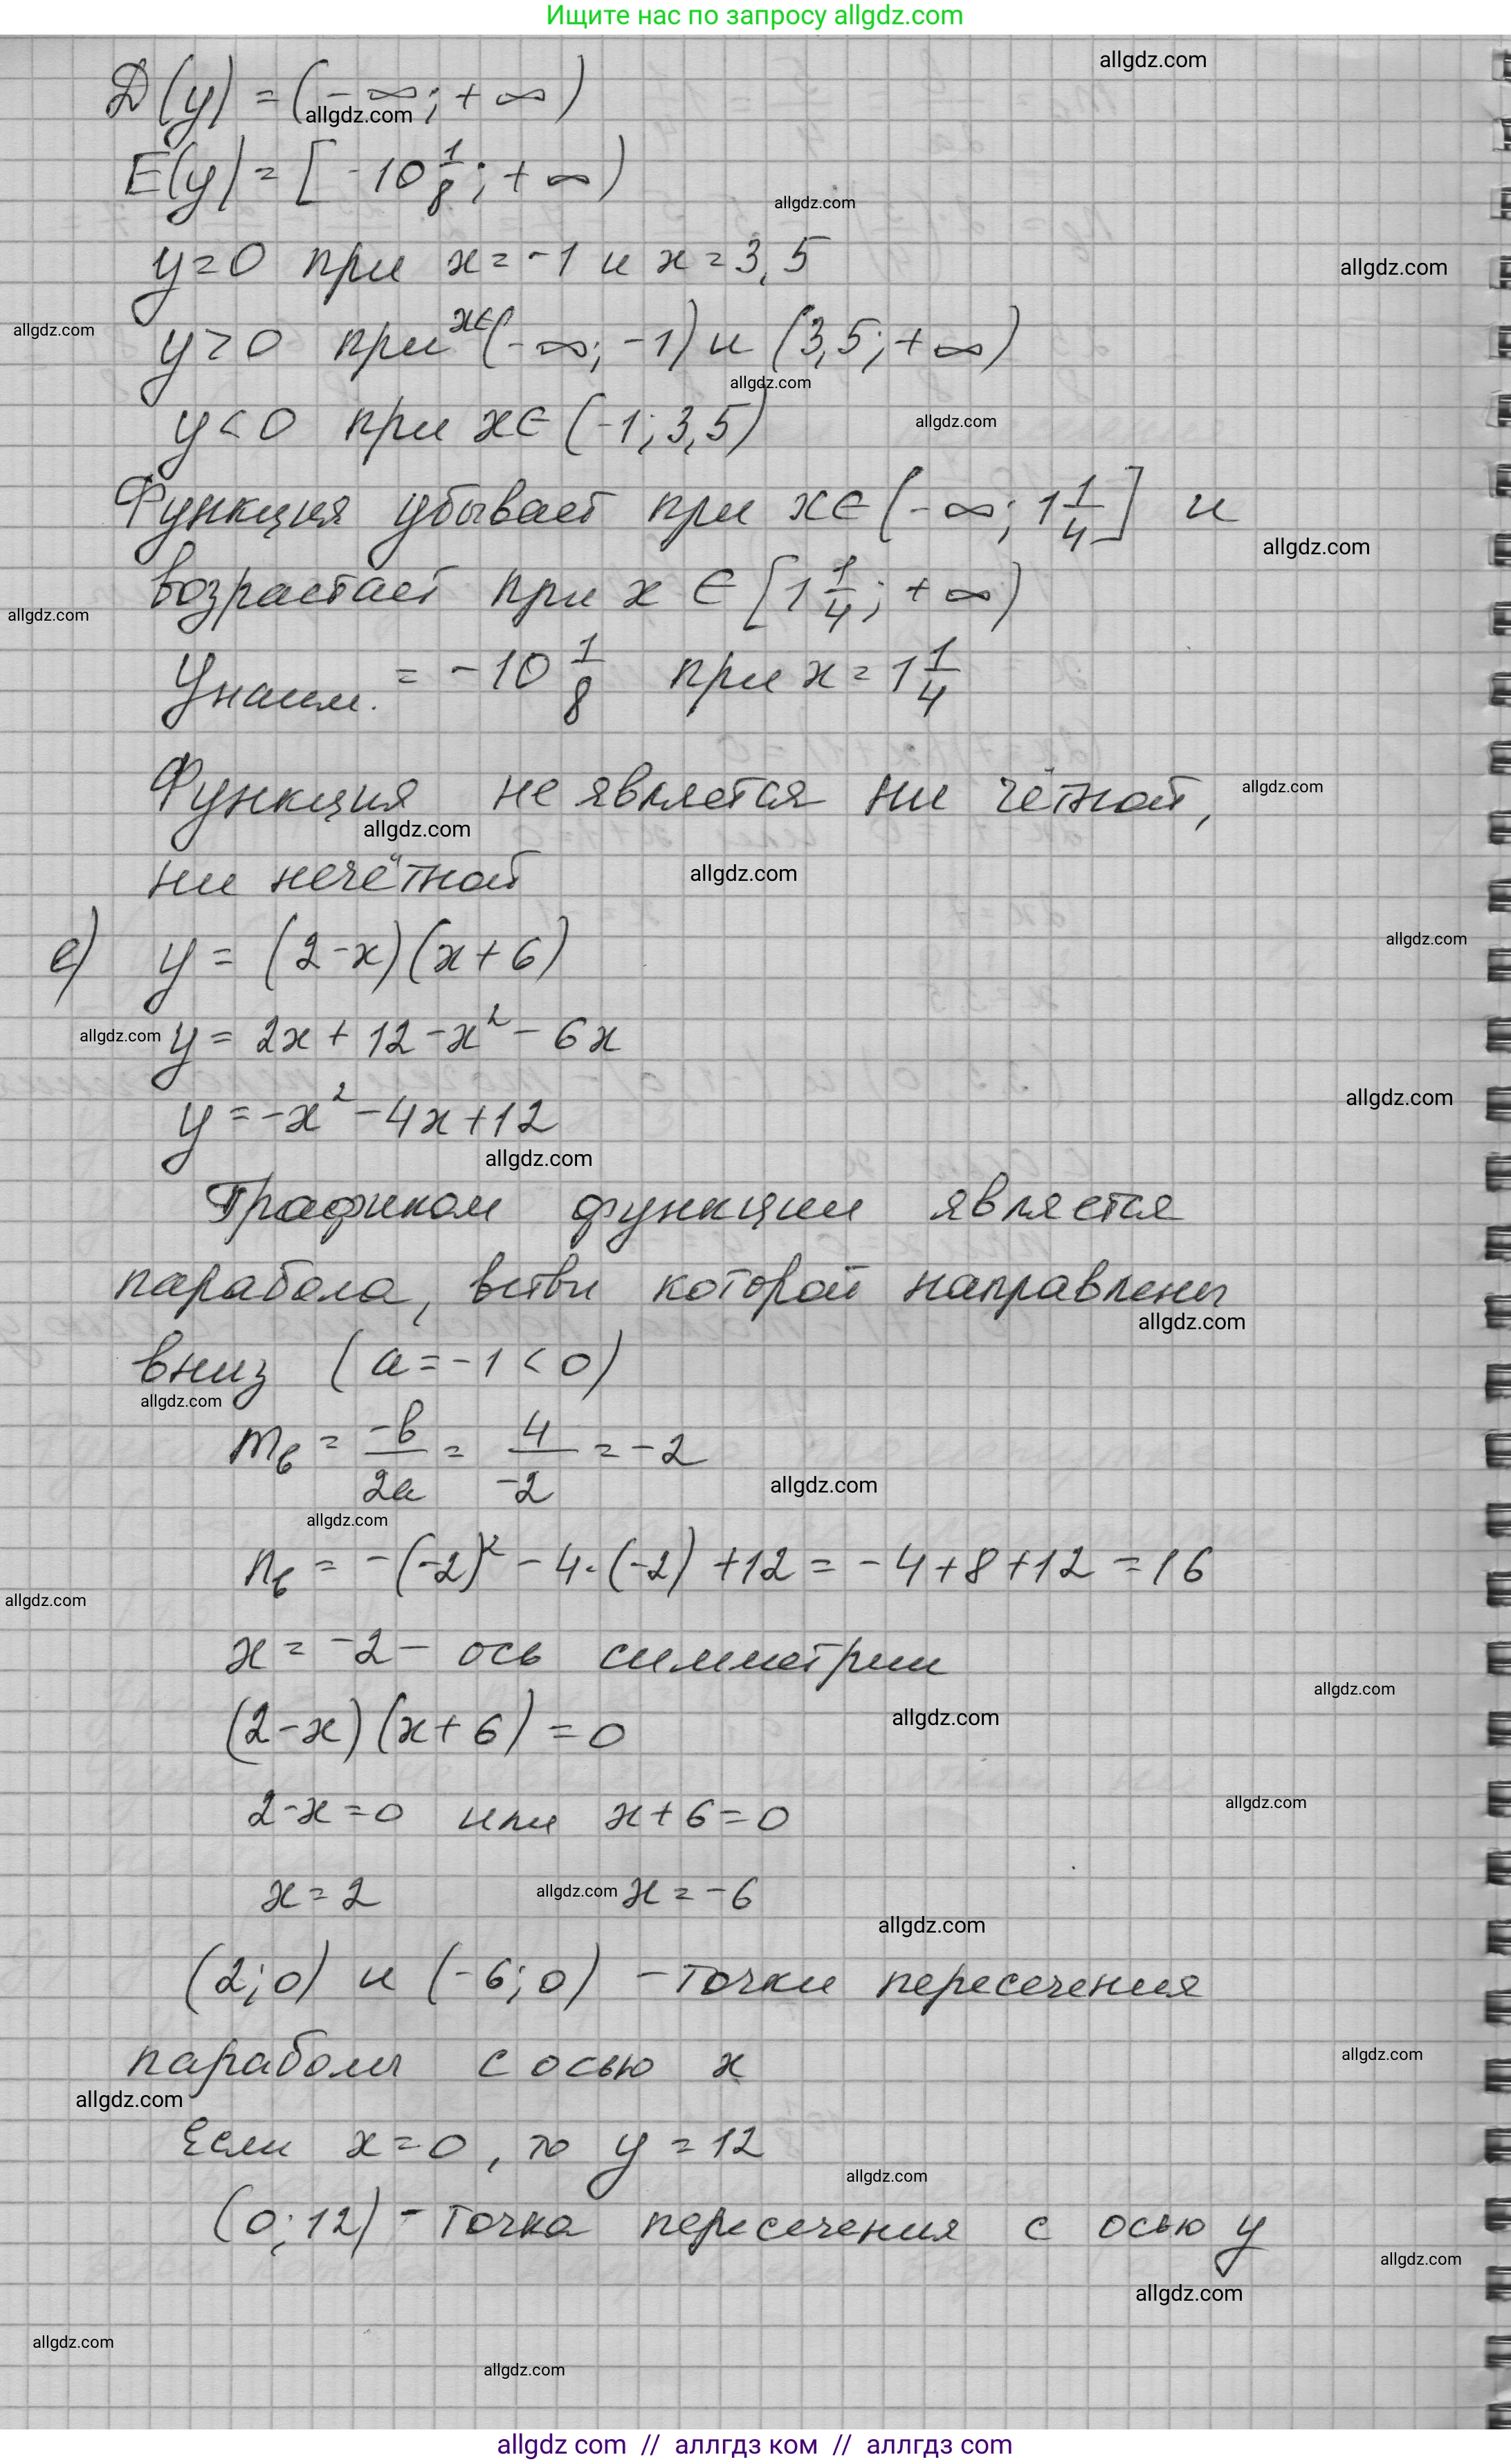 Ищите нас по запросу allgdz.com
allgdz.com
D(y) = (-∞; +∞)
allgdz.com
E(y) = [-10 1/8; +∞)
allgdz.com
y=0 при x=-1 и x=3,5
allgdz.com
allgdz.com
y>0 при x∈(-∞; -1) и (3,5; +∞)
allgdz.com
y<0 при x∈(-1; 3,5)
allgdz.com
Функция убывает при x∈(-∞; 1 1/4] и
allgdz.com
возрастает при x∈[1 1/4; +∞)
allgdz.com
yнаим. = -10 1/8 при x=1 1/4
Функция не является ни чётной,
allgdz.com
allgdz.com
ни нечётной
allgdz.com
e) y = (2-x)(x+6)
allgdz.com
y = 2x+12-x²-6x
allgdz.com
y = -x²-4x+12
allgdz.com
allgdz.com
Графиком функции является
парабола, ветви которой направлены
allgdz.com
вниз (a=-1<0)
allgdz.com
mв = -b/2a = 4/-2 = -2
allgdz.com
allgdz.com
nв = -(-2)²-4·(-2)+12 = -4+8+12 = 16
allgdz.com
x = -2 - ось симметрии
allgdz.com
(2-x)(x+6)=0
allgdz.com
2-x=0 или x+6=0
allgdz.com
x=2 allgdz.com x=-6
allgdz.com
(2;0) и (-6;0) - точки пересечения
параболы с осью x
allgdz.com
allgdz.com
Если x=0, то y=12
allgdz.com
(0;12) - точка пересечения с осью y
allgdz.com
allgdz.com
allgdz.com
allgdz.com
allgdz com // аллгдз ком // аллгдз com